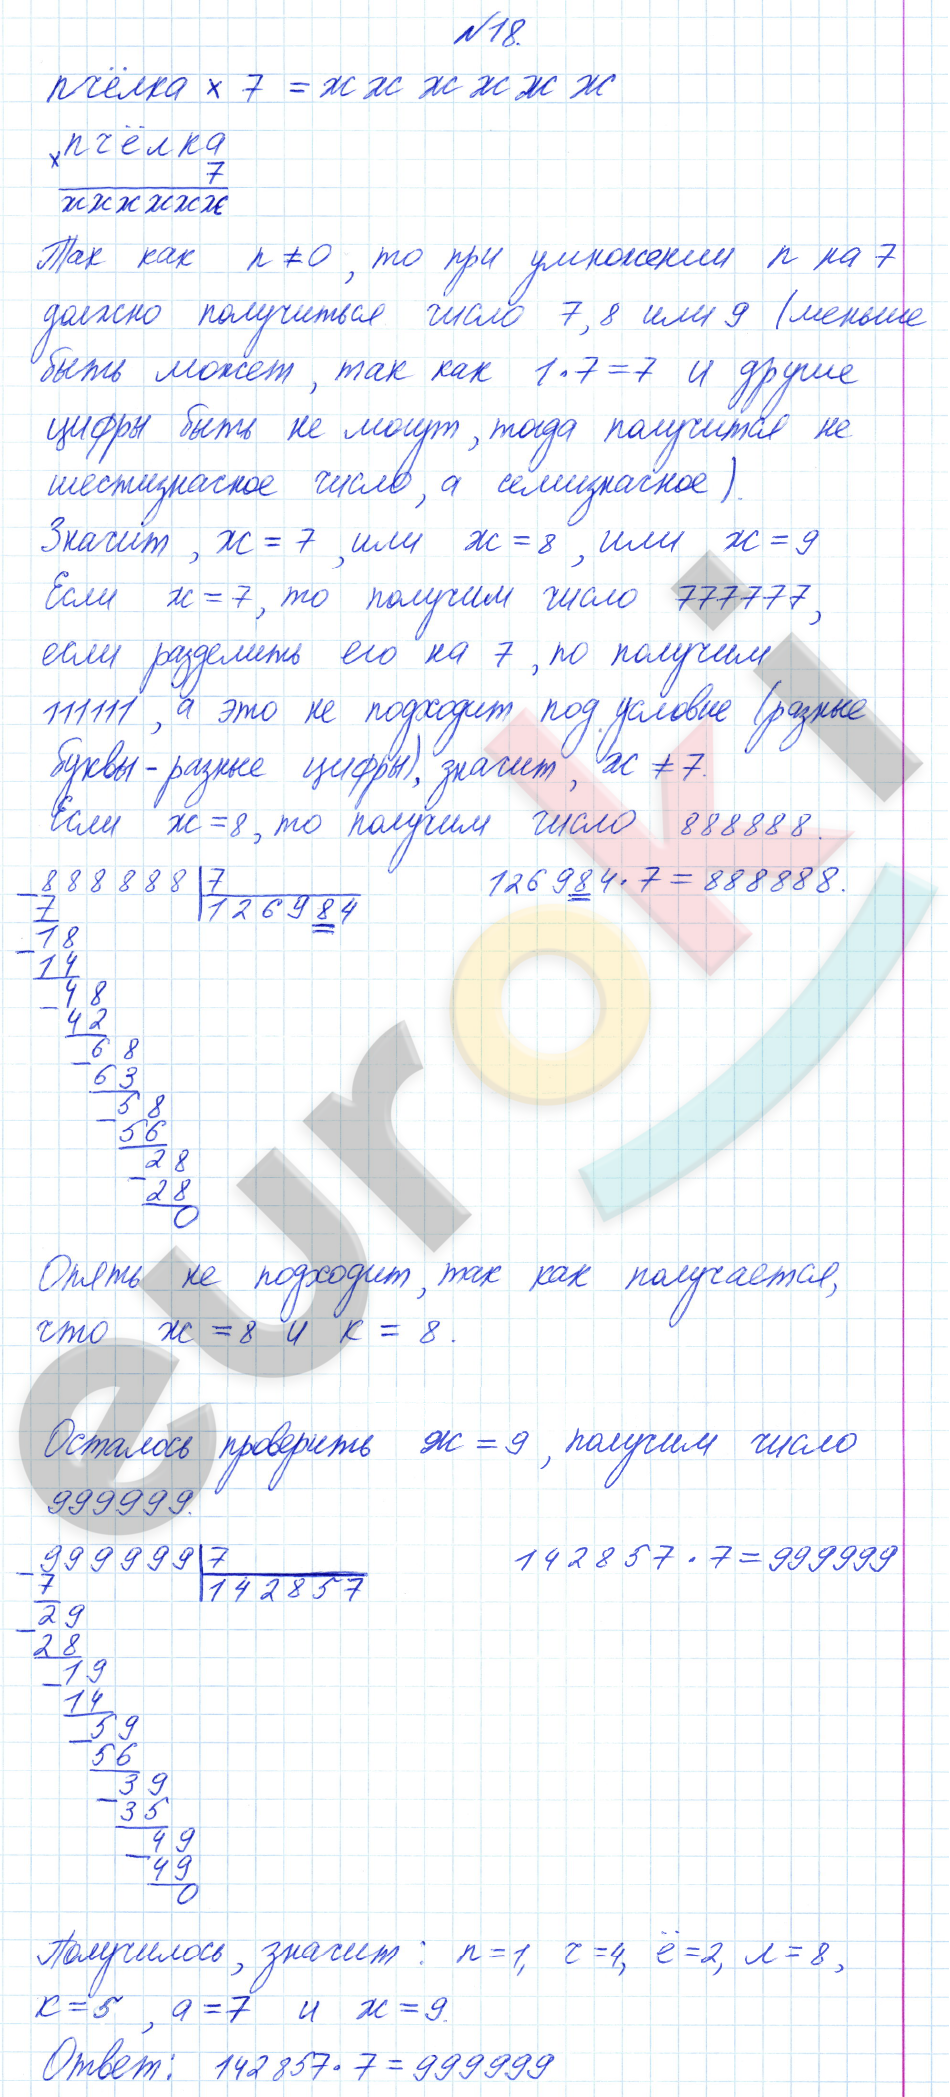 №18.
пчёлка × 7 = ж ж ж ж ж ж
× пчёлка
7
жжжжжж
Так как п ≠ 0, то при умножении п на 7
должно получиться число 7, 8 или 9 (меньше
быть может, так как 1·7=7 и другие
цифры быть не могут, тогда получится не
шестизначное число, а семизначное).
Значит, ж = 7, или ж = 8, или ж = 9
Если ж = 7, то получим число 777777,
если разделить его на 7, то получим
111111, а это не подходит под условие (разные
буквы - разные цифры), значит, ж ≠ 7.
Если ж = 8, то получим число 888888.
888888 | 7
126984
126984·7 = 888888.
– 7
18
– 14
48
– 42
68
– 63
58
– 56
28
– 28
0
Опять не подходит, так как получается,
что ж = 8 и к = 8.
Осталось проверить ж = 9, получим число
999999.
999999 | 7
142857
142857·7 = 999999
– 7
29
– 28
19
– 14
59
– 56
39
– 35
49
– 49
0
Получилось, значит: п = 1, ч = 4, ё = 2, л = 8,
к = 5, а = 7 и ж = 9.
Ответ: 142857·7 = 999999
euroki